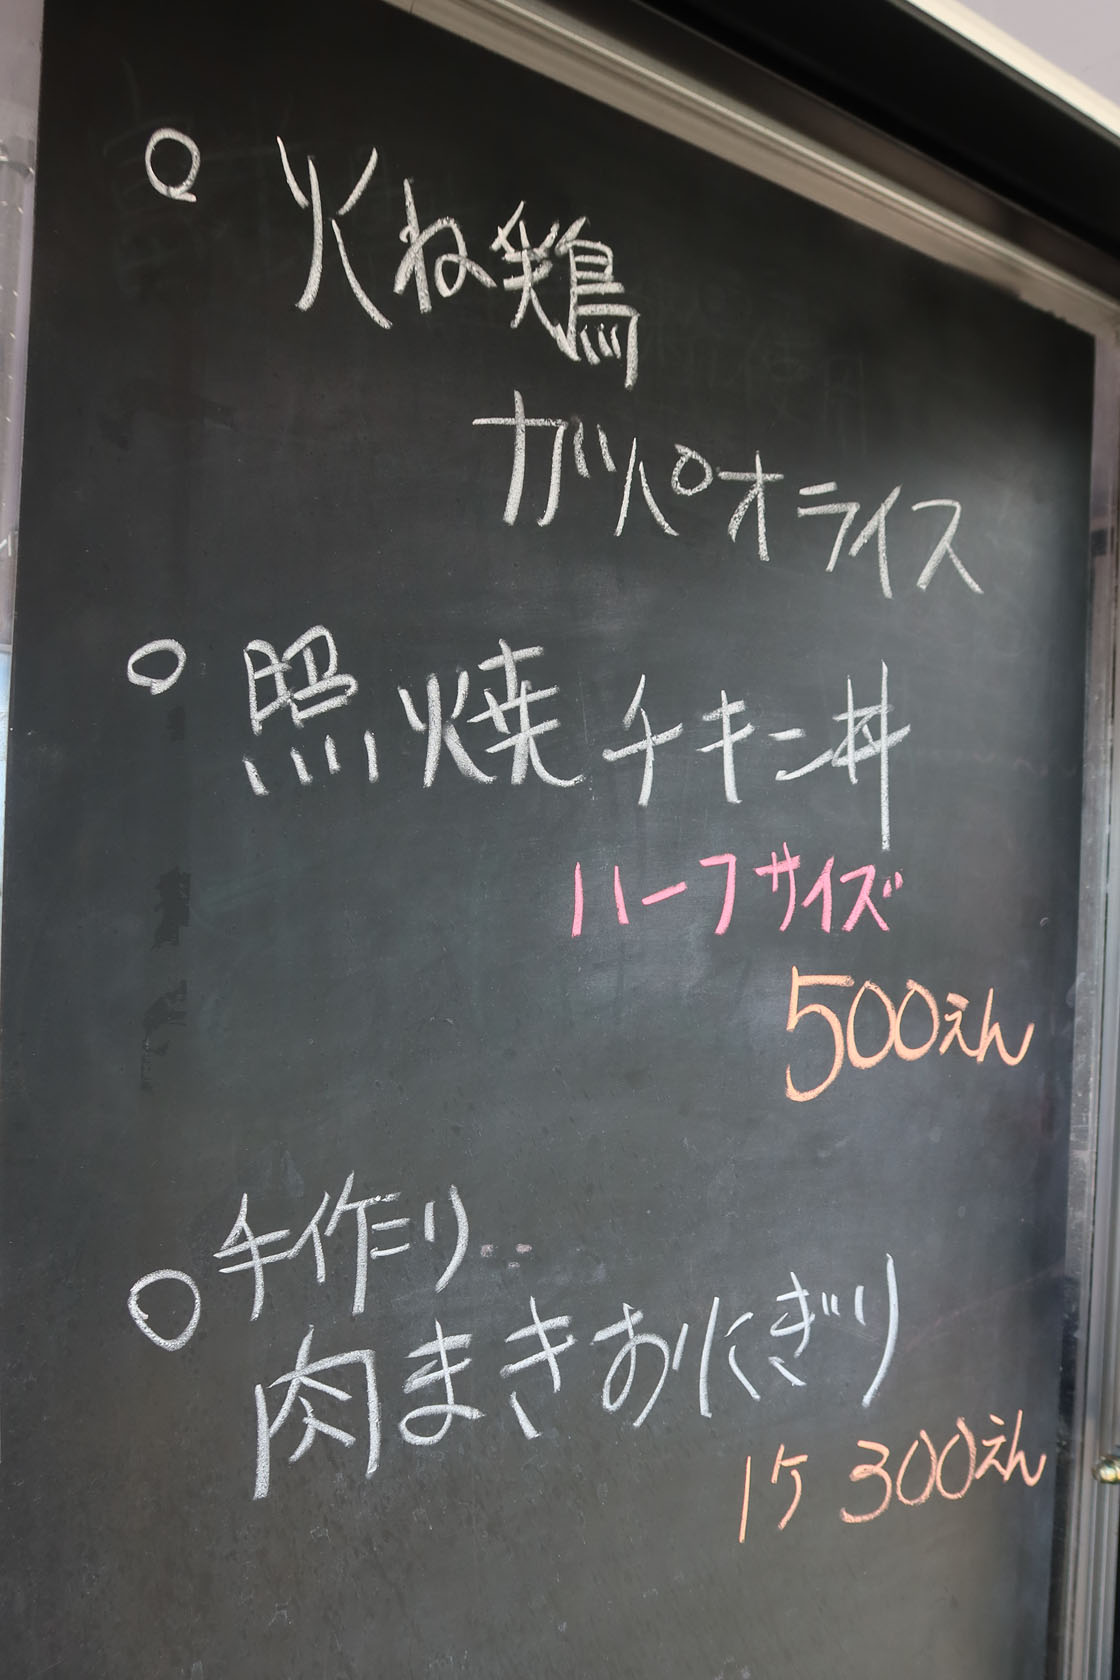 ○ 火ね鶏
ガパオライス
○ 照焼チキン丼
ハーフサイズ
500えん
手作り
○ 肉まきおにぎり
1ケ 300えん